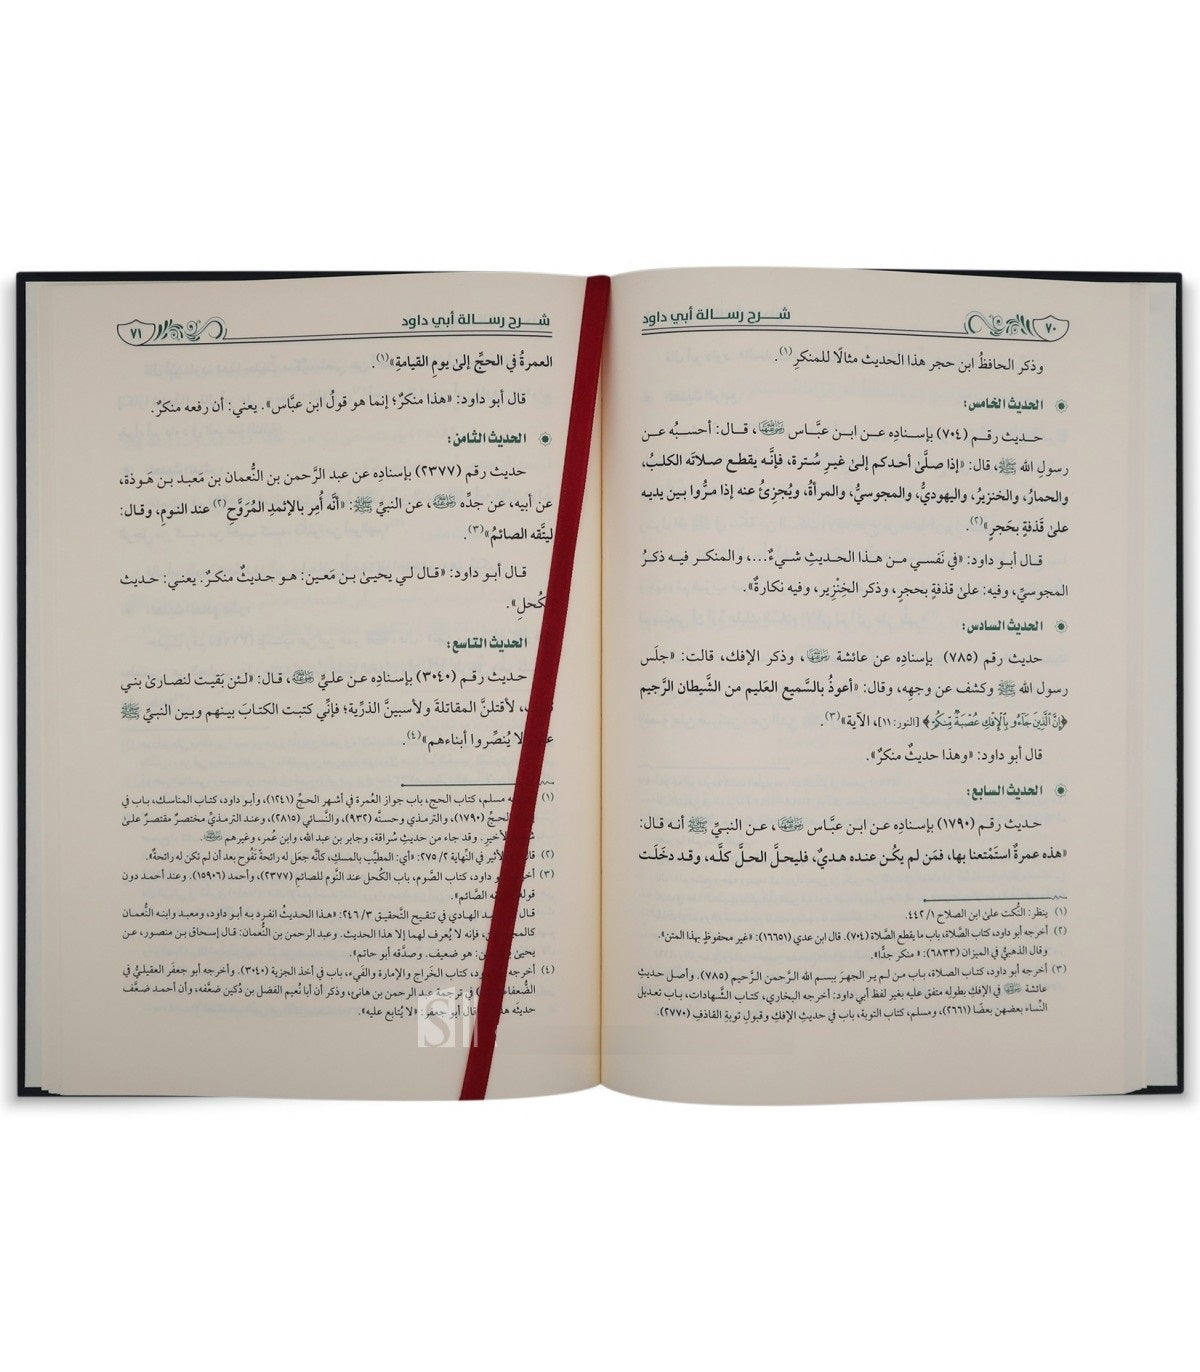 ٧٠
شرح رسالة أبي داود
وذكر الحافظُ ابن حجر هذا الحديث مثالًا للمنكرِ(١).
الحديث الخامس:
حديث رقم (٧٠٤) بإسنادِه عن ابن عبَّاس رضي الله عنهما، قال: أحسبُه عن
رسولِ الله ﷺ، قال: «إذا صلَّى أحدكم إلىٰ غيرِ سُترة، فإنَّه يقطع صلاتَه الكلبُ،
والحمارُ، والخنزيرُ، واليهوديُّ، والمجوسيُّ، والمرأةُ، ويُجزِئُ عنه إذا مرُّوا بين يديه
علىٰ قَذفةٍ بحَجرٍ»(٢).
قال أبو داود: «في نَفسي من هذا الحديثِ شيءٌ...، والمنكر فيه ذكرُ
المجوسيِّ، وفيه: علىٰ قذفةٍ بحجرٍ، وذكر الخِنْزِير، وفيه نكارةٌ».
الحديث السادس:
حديث رقم (٧٨٥) بإسنادِه عن عائشة رضي الله عنها، وذكر الإفك، قالت: «جلَس
رسول الله ﷺ وكشف عن وجهِه، وقال: «أعوذُ بالسَّميع العَليم من الشَّيطان الرَّجيم
﴿إِنَّ ٱلَّذِينَ جَآءُو بِٱلْإِفْكِ عُصْبَةٌ مِّنكُمْ﴾ [النور: ١١]، الآية»(٣).
قال أبو داود: «وهذا حديثٌ منكرٌ».
الحديث السابع:
حديث رقم (١٧٩٠) بإسنادِه عن ابن عبَّاس رضي الله عنهما، عن النبيِّ ﷺ أنه قال:
«هذه عمرةٌ استَمْتعنا بها، فمَن لم يكُن عنده هديٌ، فليحلَّ الحلَّ كلَّه، وقد دخَلَت
(١) ينظر: النُّكت علىٰ ابن الصلاح ١/ ٤٤٢.
(٢) أخرجه أبو داود، كتاب الصَّلاة، باب ما يقطع الصَّلاة (٧٠٤). قال ابن عدي (١٦٦٥١): «غير محفوظٍ بهذا المتن».
وقال الذهبيُّ في الميزان (٦٨٣٣): «منكر جدًّا».
(٣) أخرجه أبو داود، كتاب الصلاة، باب من لم ير الجهرَ ببسم الله الرَّحمن الرَّحيم (٧٨٥). وأصل حديثِ
عائشة رضي الله عنها في الإفكِ بطولِه متفق عليه بغير لفظ أبي داود: أخرجه البخاري، كتاب الشَّهادات، باب تعديل
النِّساء بعضهن بعضًا (٢٦٦١)، ومسلم، كتاب التوبة، باب في حديثِ الإفكِ وقبولِ توبةِ القاذفِ (٢٧٧٠).
شرح رسالة أبي داود
٧١
العمرةُ في الحجِّ إلىٰ يومِ القيامةِ»(١).
قال أبو داود: «هذا منكرٌ؛ إنما هو قولُ ابن عبَّاس». يعني: أن رفعه منكرٌ.
الحديث الثامن:
حديث رقم (٢٣٧٧) بإسنادِه عن عبد الرَّحمن بن النُّعمان بن مَعبد بن هَوذة،
عن أبيه، عن جدِّه رضي الله عنه، عن النبيِّ ﷺ: «أنَّه أُمِر بالإثمدِ المُرَوَّحِ(٢) عند النومِ، وقال:
ليتَّقه الصائمُ»(٣).
قال أبو داود: «قال لي يحيىٰ بن مَعين: هو حديثٌ منكرٌ. يعني: حديث
الكُحلِ».
الحديث التاسع:
حديث رقم (٣٠٤٠) بإسنادِه عن عليٍّ رضي الله عنه، قال: «لئن بَقيت لنصارىٰ بني
، لأقتلنَّ المقاتلةَ ولأسبينَّ الذرِّية؛ فإنِّي كتبت الكتابَ بينهم وبين النبيِّ ﷺ
لا يُنصِّروا أبناءهم»(٤).
(١) مسلم، كتاب الحج، باب جواز العُمرة في أشهر الحجِّ (١٢٤١)، وأبو داود، كتاب المناسك، باب في
الحجِّ (١٧٩٠)، والترمذي وحسنَّه (٩٣٢)، والنَّسائي (٢٨١٥). وعند الترمذيِّ مختصرٌ مقتصرٌ علىٰ
الأخيرِ. وقد جاء من حديثِ سُراقة، وجابر بن عبد الله، وابن عُمر، وغيرهم
(٢) الأثير في النِّهاية ٢/ ٢٧٥: «أي: المطيَّب بالمسكِ، كأنَّه جعَل له رائحةً تَفُوح بعد أن لم تكن له رائحةٌ».
(٣) داود، كتاب الصَّوم، باب الكُحل عند النَّوم للصائمِ (٢٣٧٧)، وأحمد (١٥٩٠٦). وعند أحمد دون
الصَّائم».
الهادي في تنقيح التَّحقيق ٣/ ٢٤٦: «هذا الحديثُ انفرد به أبو داود، ومعبد وابنه النُّعمان
فإنه لا يُعرف لهما إلا هذا الحديث. وعبد الرحمن بن النُّعمان: قال إسحاق بن منصور، عن
هو ضعيف. وصدَّقه أبو حاتم».
(٤) كتاب الخَراج والإمارة والفَيء، باب في أخذ الجزية (٣٠٤٠). وأخرجه أبو جعفَر العقيليُّ في
في ترجمة عبد الرحمن بن هانئ، وذكر أن أبا نُعيم الفضل بن دُكين ضعَّفه، وأن أحمد ضعَّف
حديثه قال أبو جعفر: «لا يُتابع عليه».